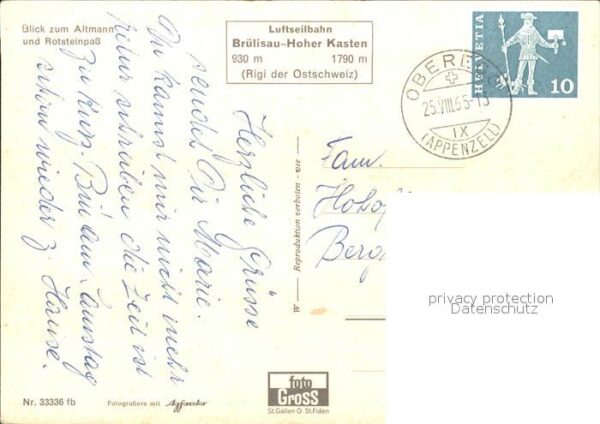 Blick zum Altmann
und Rotsteinpaß
Luftseilbahn
Brülisau-Hoher Kasten
930 m 1790 m
(Rigi der Ostschweiz)
HELVETIA
10
OBEREGG
25.VIII.65-15
IX
(APPENZELL)
Herzliche Grüsse
sendet Dir Marie.
Du kannst mir nicht mehr
retur schreiben die Zeit ist
zu kurz. Bin am Samstag
schon wieder z. Hause.
Fam.
W — Reproduktion verboten - ose —
privacy protection
Datenschutz
Nr. 33336 fb
Fotografiere mit Agfacolor
foto
GROSS
St.Gallen O St.Fiden